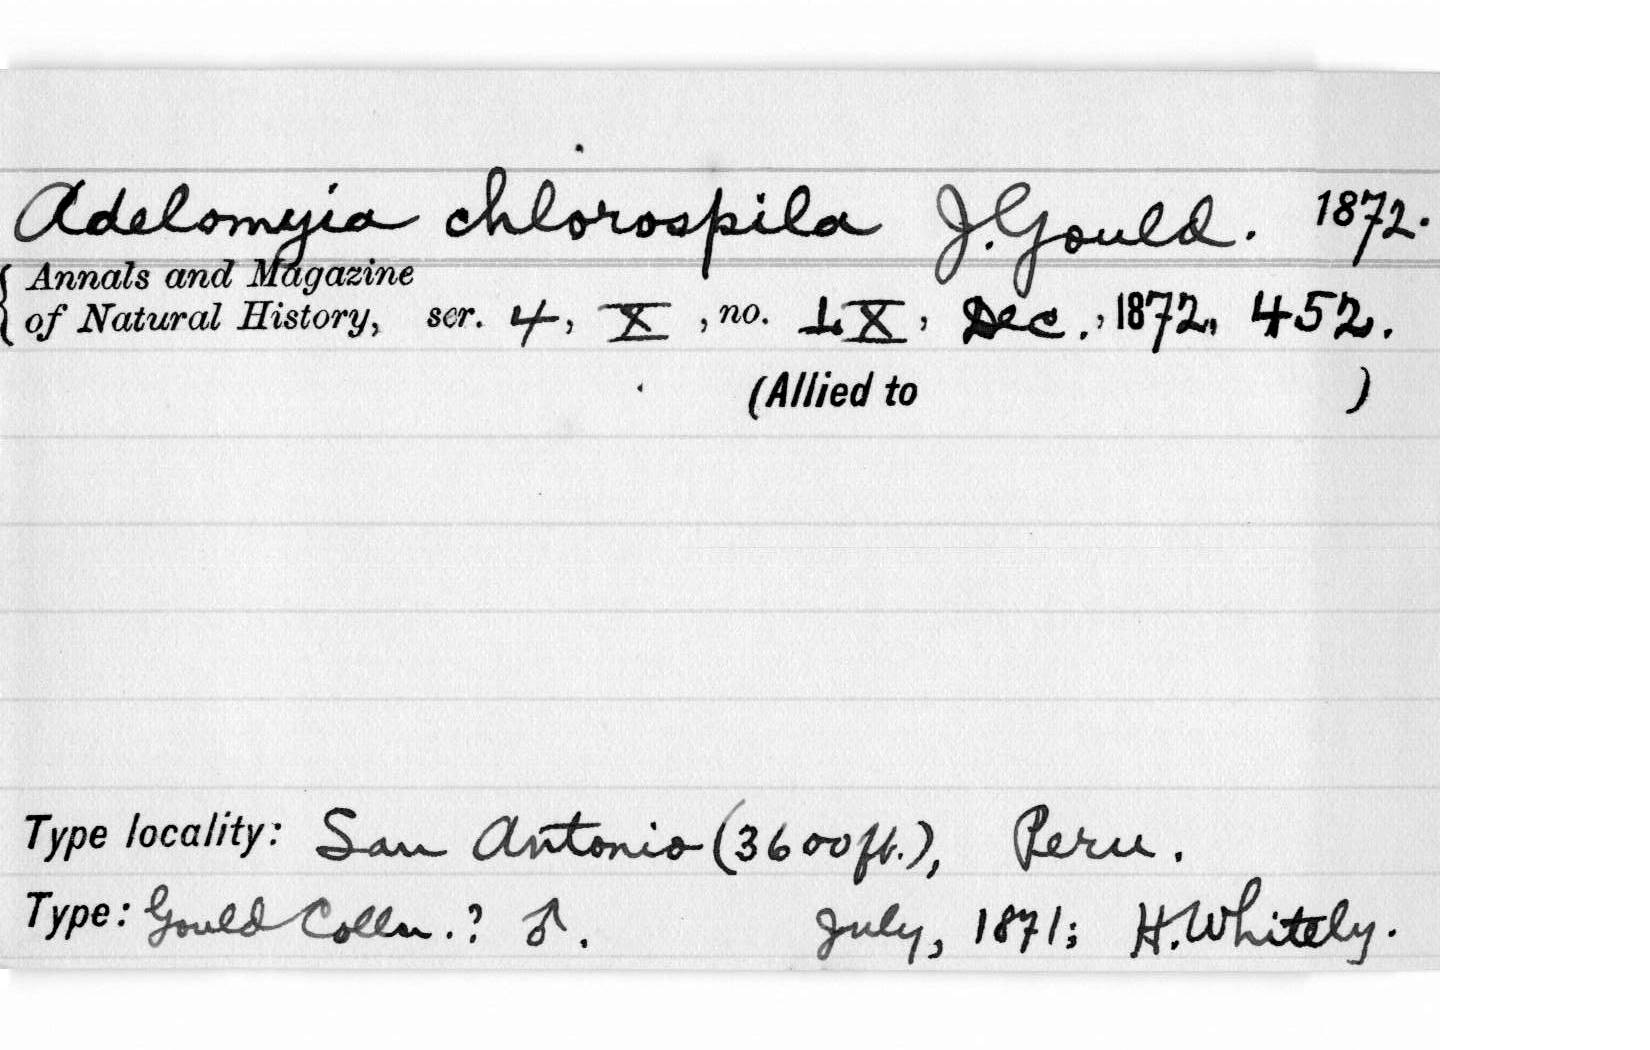 Adelomyia chlorospila J. Gould. 1872.
{ Annals and Magazine
of Natural History, ser. 4, X, no. LX, Dec., 1872, 452.
(Allied to )
Type locality: San Antonio (3600 ft.), Peru.
Type: Gould Colln.? ♂. July, 1871; H. Whitely.